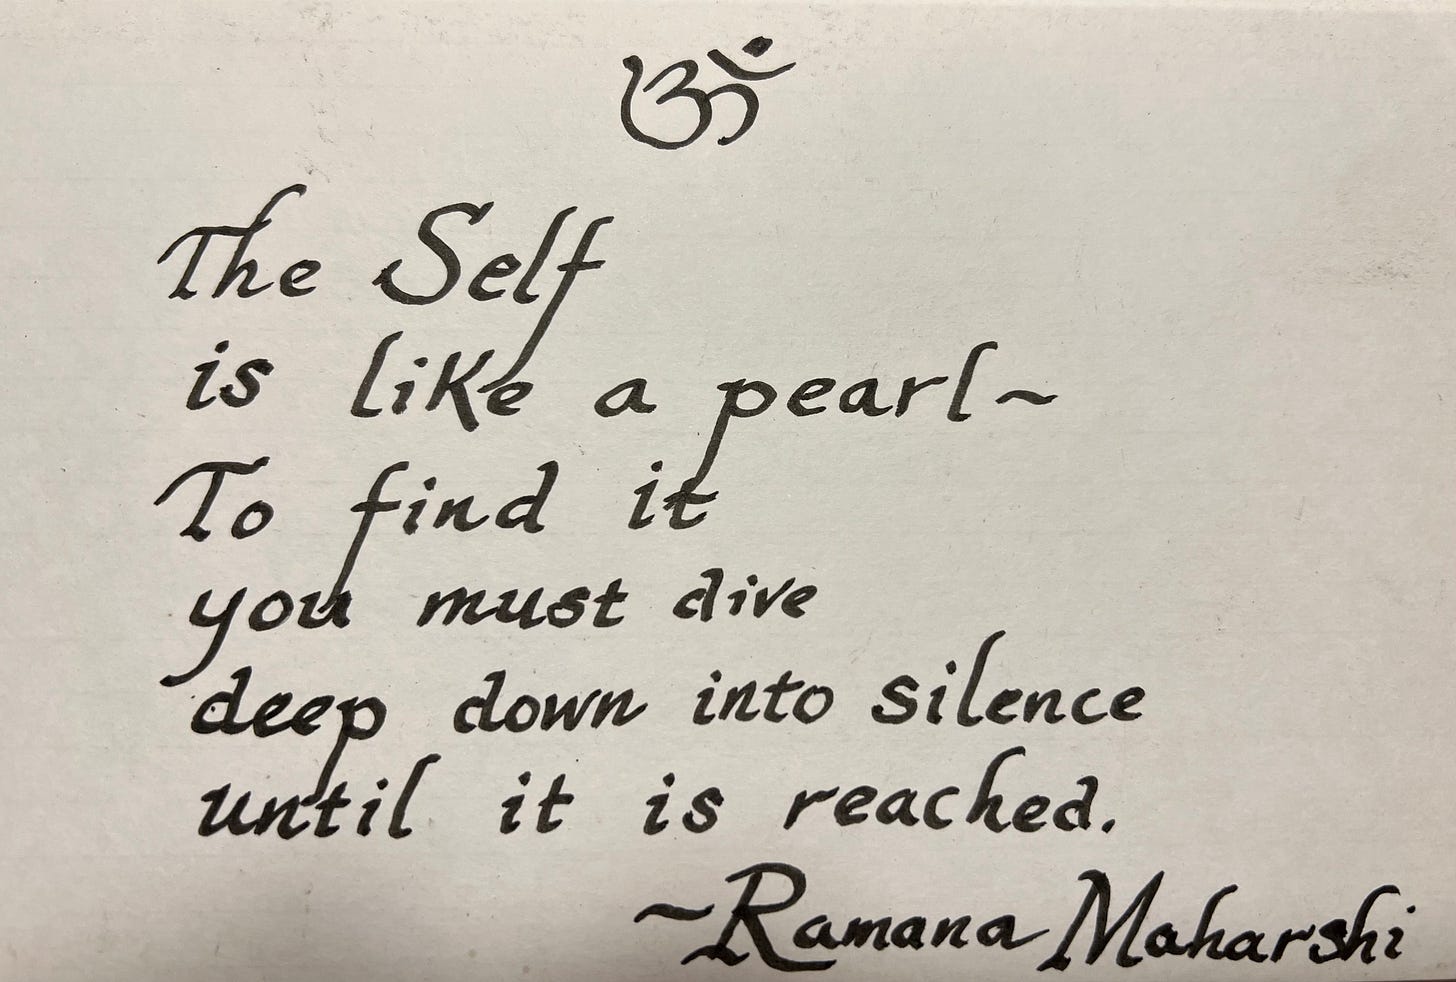 ॐ
The Self
is like a pearl~
To find it
you must dive
deep down into silence
until it is reached.
~Ramana Maharshi